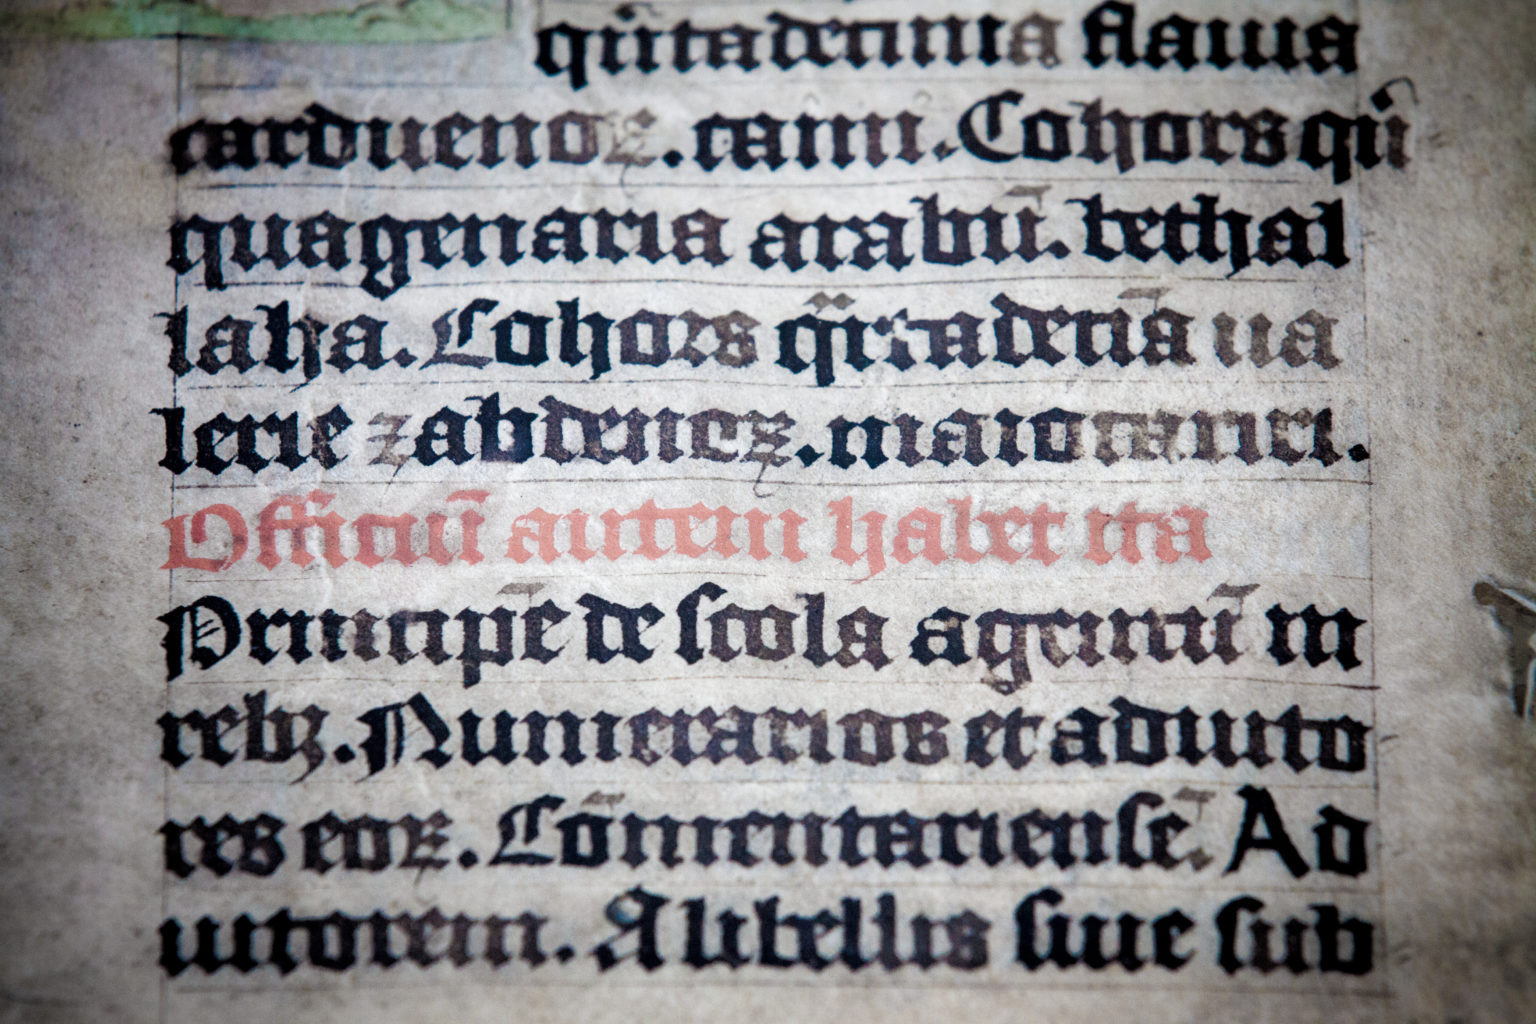 qͥrtadecima flauia
carduenoꝝ. cani. Cohors qͥn
quagenaria arabū. bethal
laha. Cohors qͥrtadeciā ua
lerie zabdenoꝝ. maiocarici.
Officiū autem habet ita
Principē de scola agentiū in
rebꝫ. Numerarios et adiuto
res eoꝝ. Cōmentariensē. Ad
iutorem. A libellis siue sub